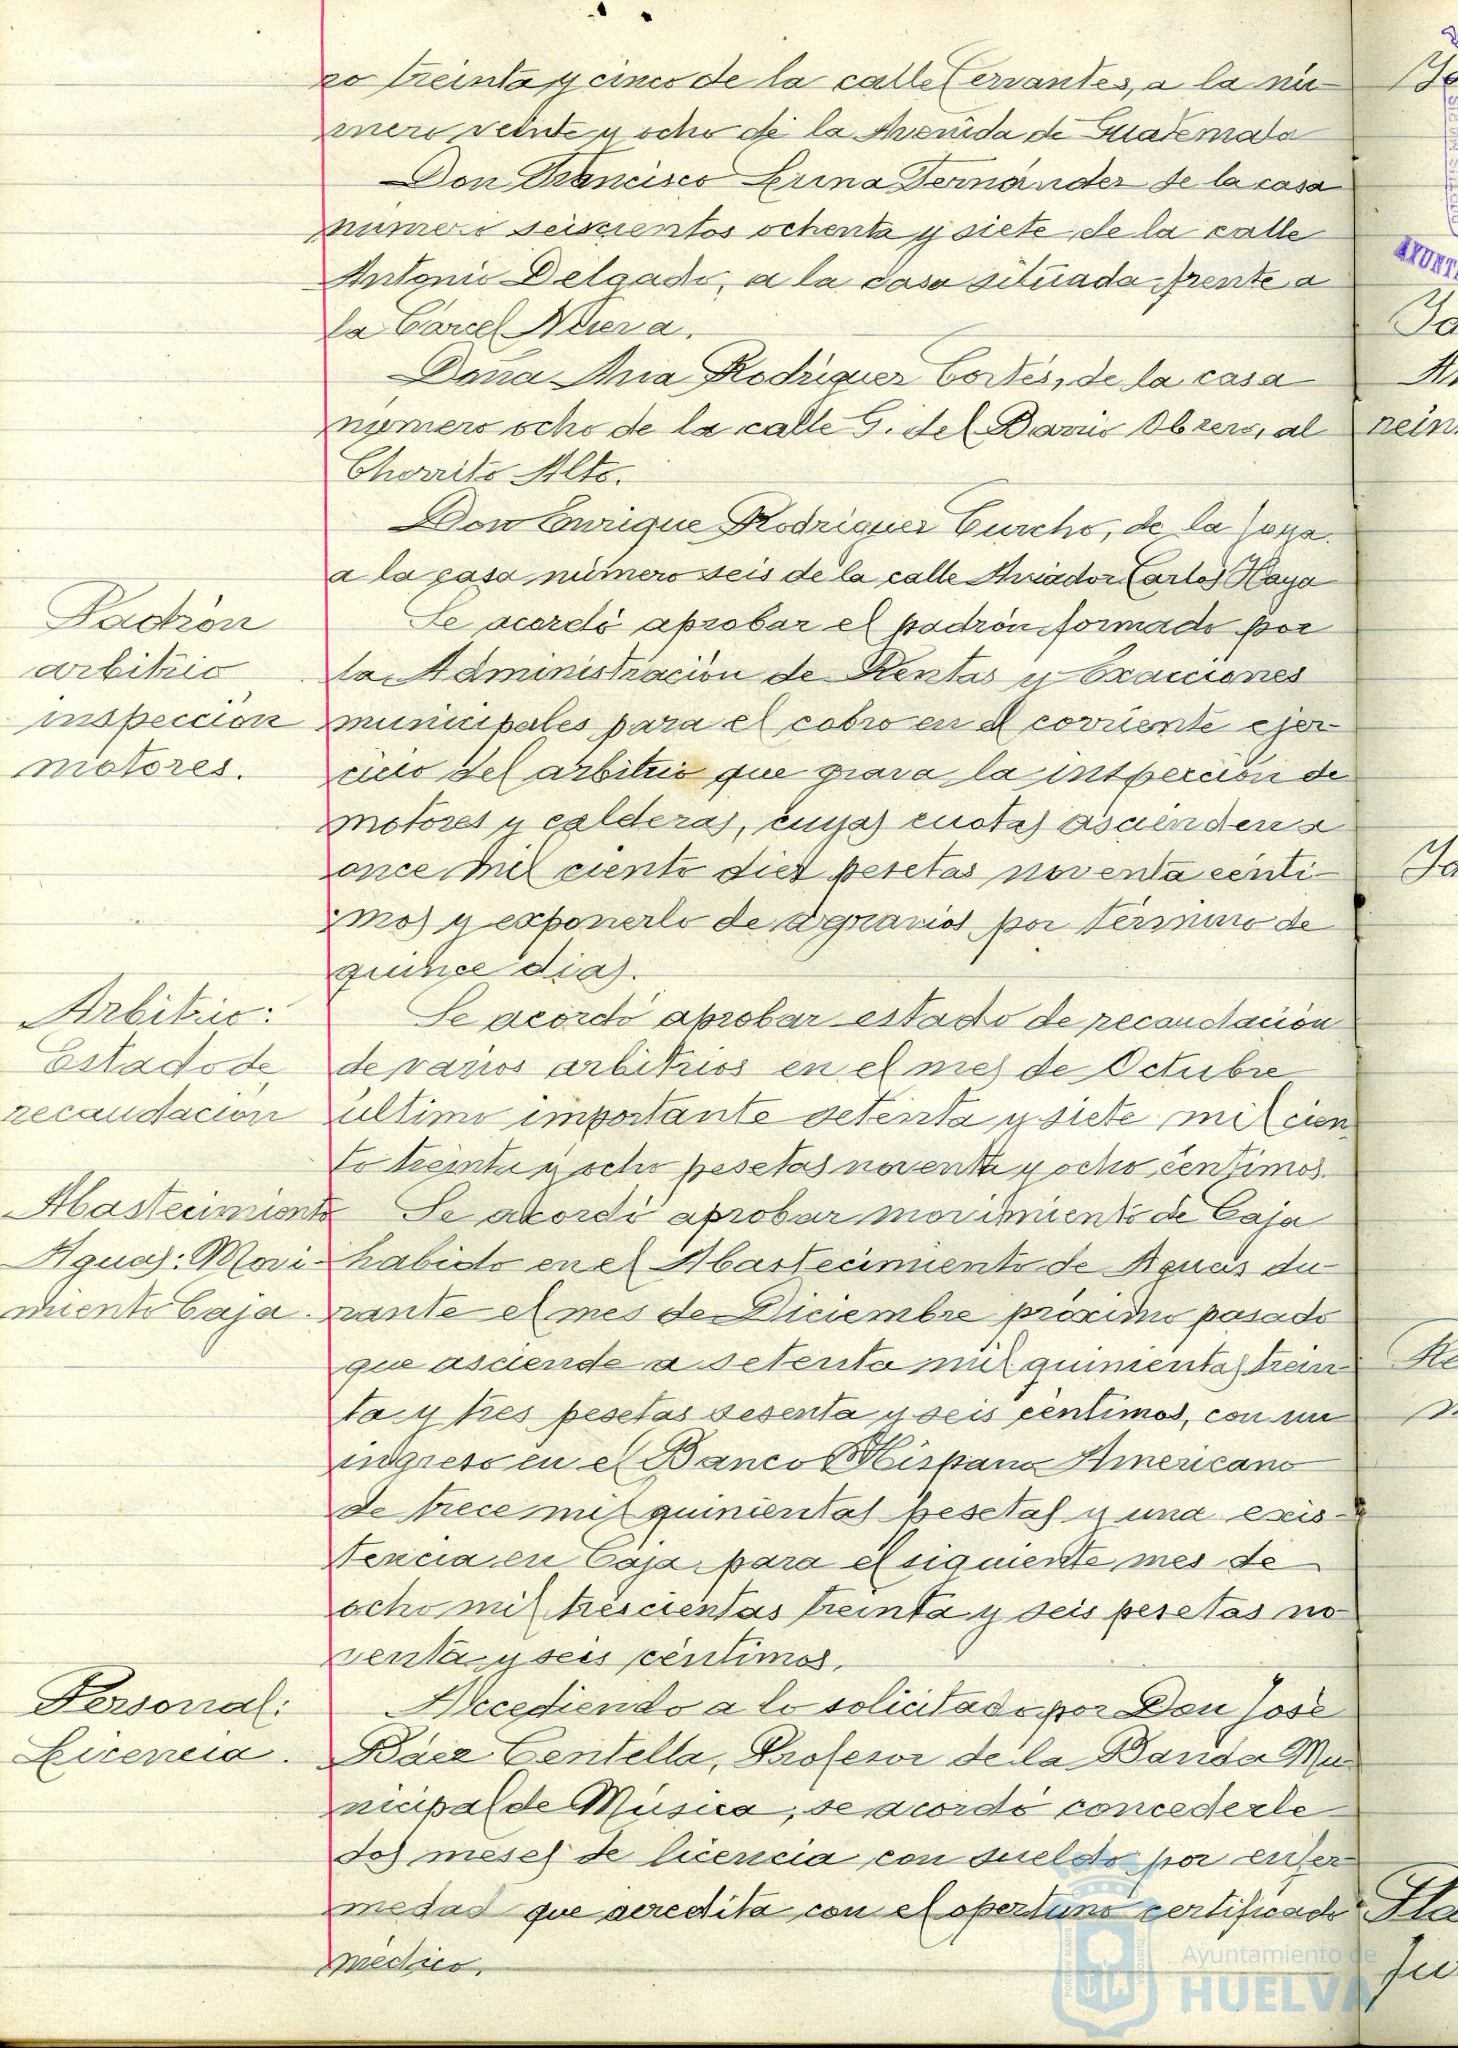 ro treinta y cinco de la calle Cervantes, a la nú-
mero veinte y ocho de la Avenida de Guatemala
Don Francisco Luna Fernández de la casa
número seiscientos ochenta y siete de la calle
Antonio Delgado, a la casa situada frente a
la Cárcel Nueva.
Doña Ana Rodríguez Cortés, de la casa
número ocho de la calle G. del Barrio Obrero, al
Chorrito Alto.
Don Enrique Rodríguez Curcho, de la Joya
a la casa número seis de la calle Aviador Carlos Haya
Padrón
arbitrio
inspección
motores.
Se acordó aprobar el padrón formado por
la Administración de Rentas y Exacciones
municipales para el cobro en el corriente ejer-
cicio del arbitrio que grava la intspección de
motores y calderas, cuyas cuotas ascienden a
once mil ciento diez pesetas noventa cénti-
mos y exponerlo de agravios por término de
quince dias.
Arbitrio:
Estado de
recaudación
Se acordó aprobar estado de recaudación
de varios arbitrios en el mes de Octubre
último importante setenta y siete mil cien
to treinta y ocho pesetas noventa y ocho céntimos.
Abastecimiento
Aguas: Movi-
miento Caja.
Se acordó aprobar movimiento de Caja
habido en el Abastecimiento de Aguas du-
rante el mes de Diciembre próximo pasado
que asciende a setenta mil quinientas trein-
ta y tres pesetas sesenta y seis céntimos, con un
ingreso en el Banco Hispano Americano
de trece mil quinientas pesetas y una exis-
tencia en Caja para el siguiente mes de
ocho mil trescientas treinta y seis pesetas no-
venta y seis céntimos.
Personal:
Licencia.
Accediendo a lo solicitado por Don José
Báez Centella, Profesor de la Banda Mu-
nicipal de Música, se acordó concederle
dos meses de licencia con sueldo por enfer-
medad que acredita con el oportuno certificado
médico.
Ayuntamiento de
HUELVA